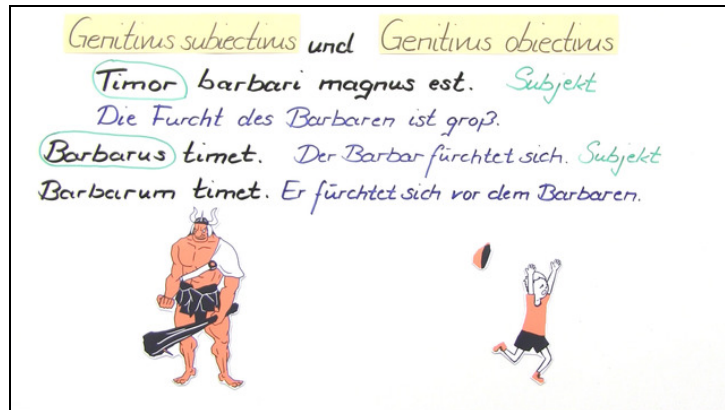 Genitivus subiectivus und Genitivus obiectivus
Timor barbari magnus est. Subjekt
Die Furcht des Barbaren ist groß.
Barbarus timet. Der Barbar fürchtet sich. Subjekt
Barbarum timet. Er fürchtet sich vor dem Barbaren.